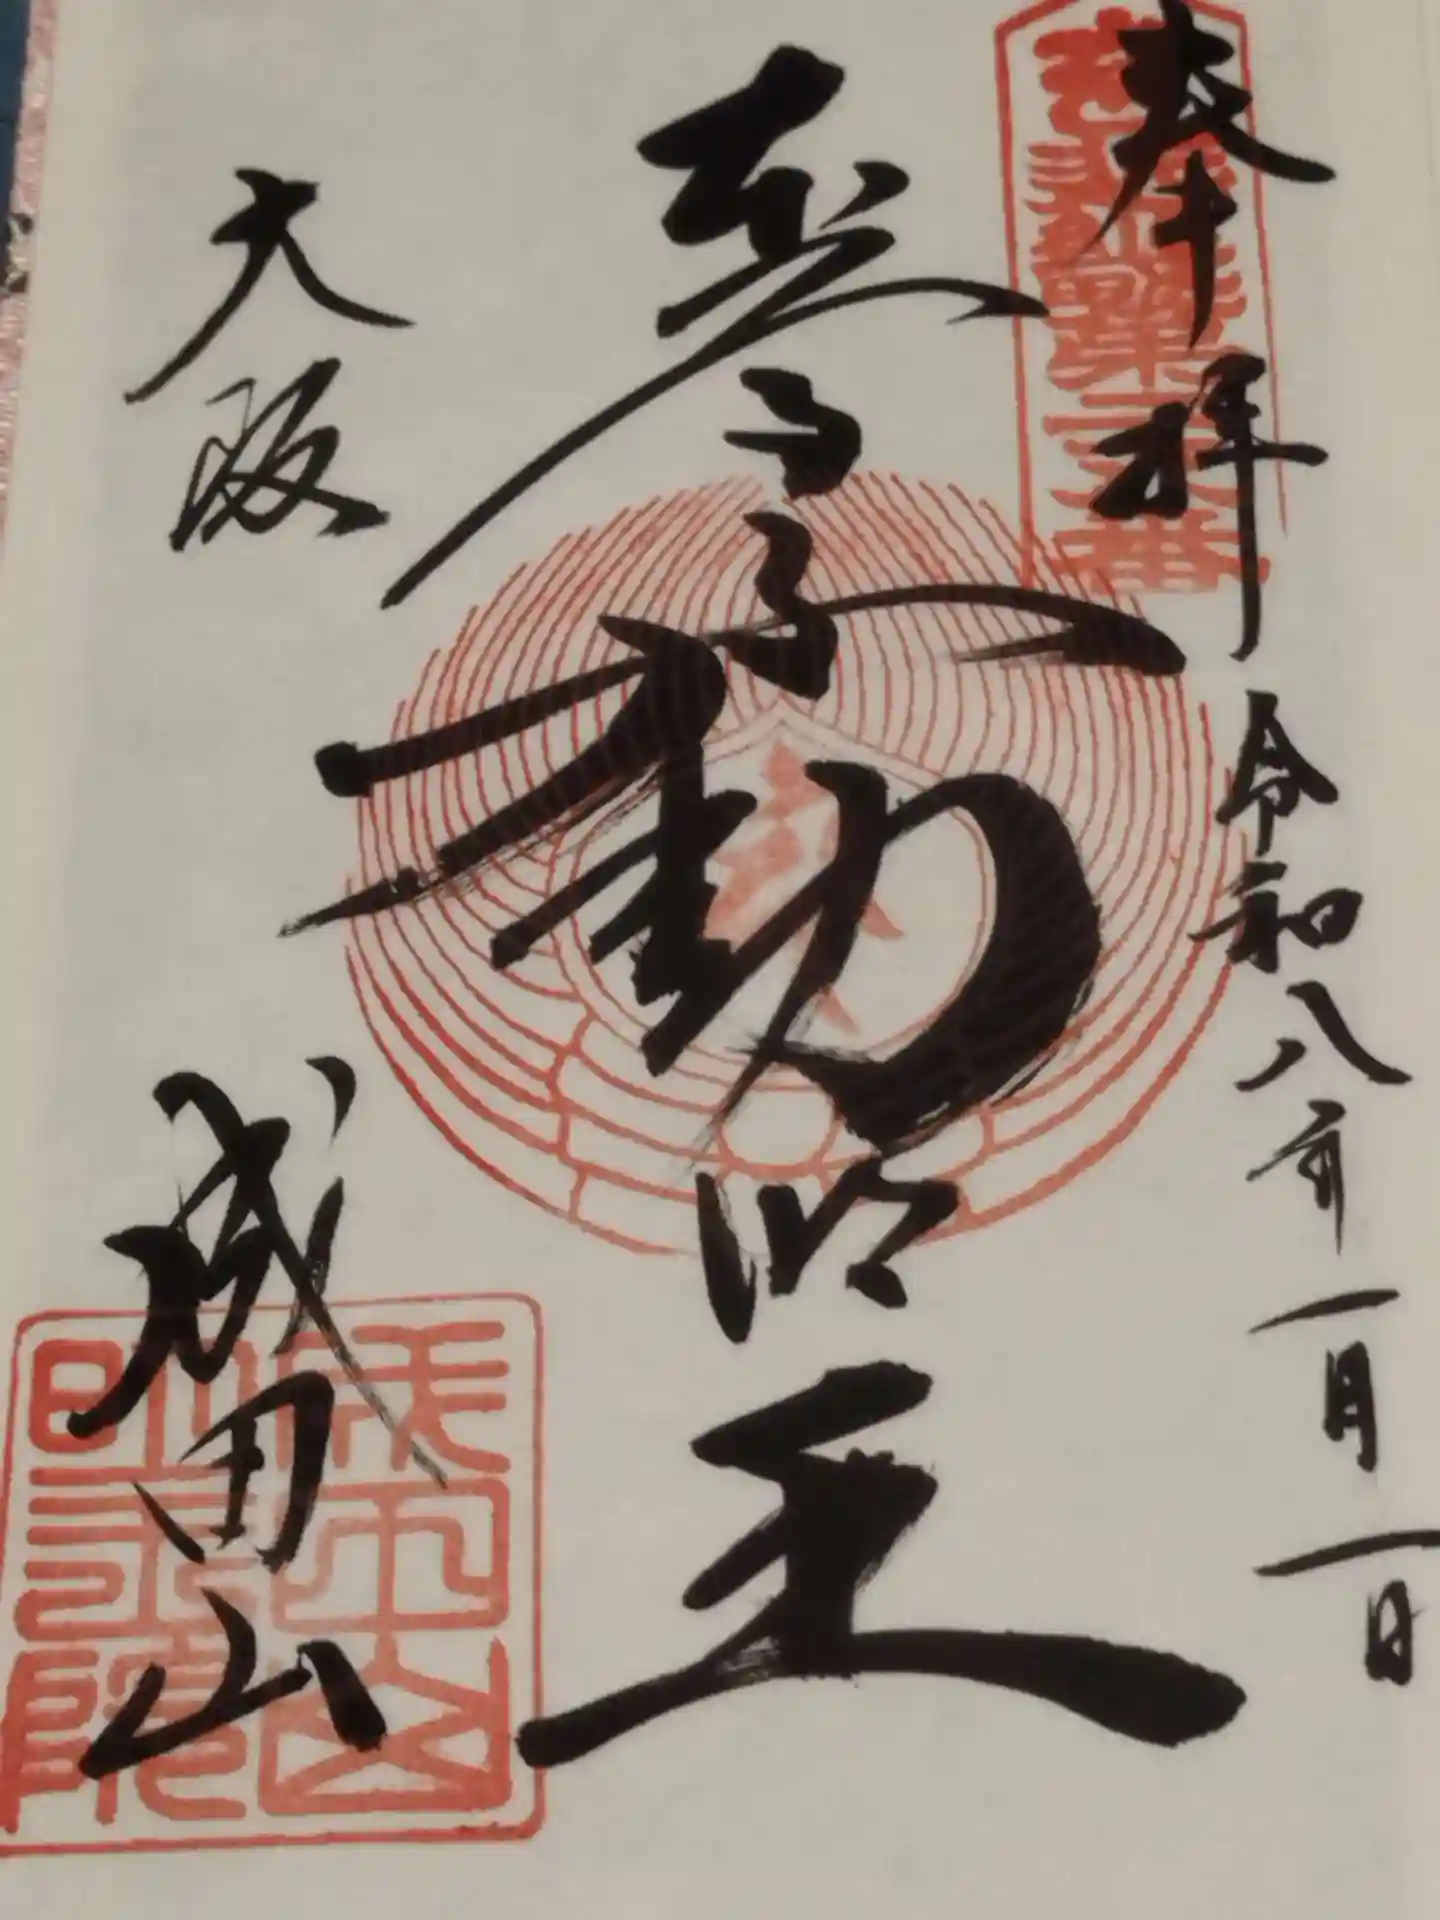 奉拝 令和八年一月一日
動明王
大阪 成田山
成田山
明王院